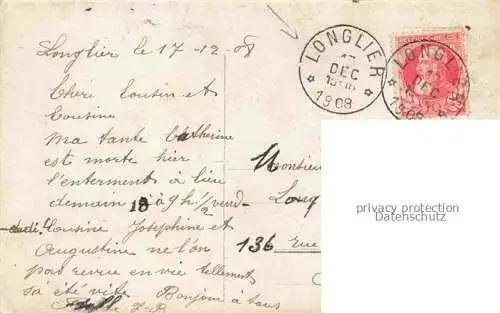 Longlier le 17-12-08
Cheri Cousin et
Cousine
Ma tante Catherine
est morte hier
l'enterment à lieu
demain 18 à 9h 1/2 vend-
redi. Cousine Josephine et
Augustine ne l'on
pas revue en vie tellement
sa été vite Bonjour à tous
J-B
LONGLIER
17
DEC
1908
LONGLIER
DEC
1908
Monsieur
136 rue
privacy protection
Datenschutz